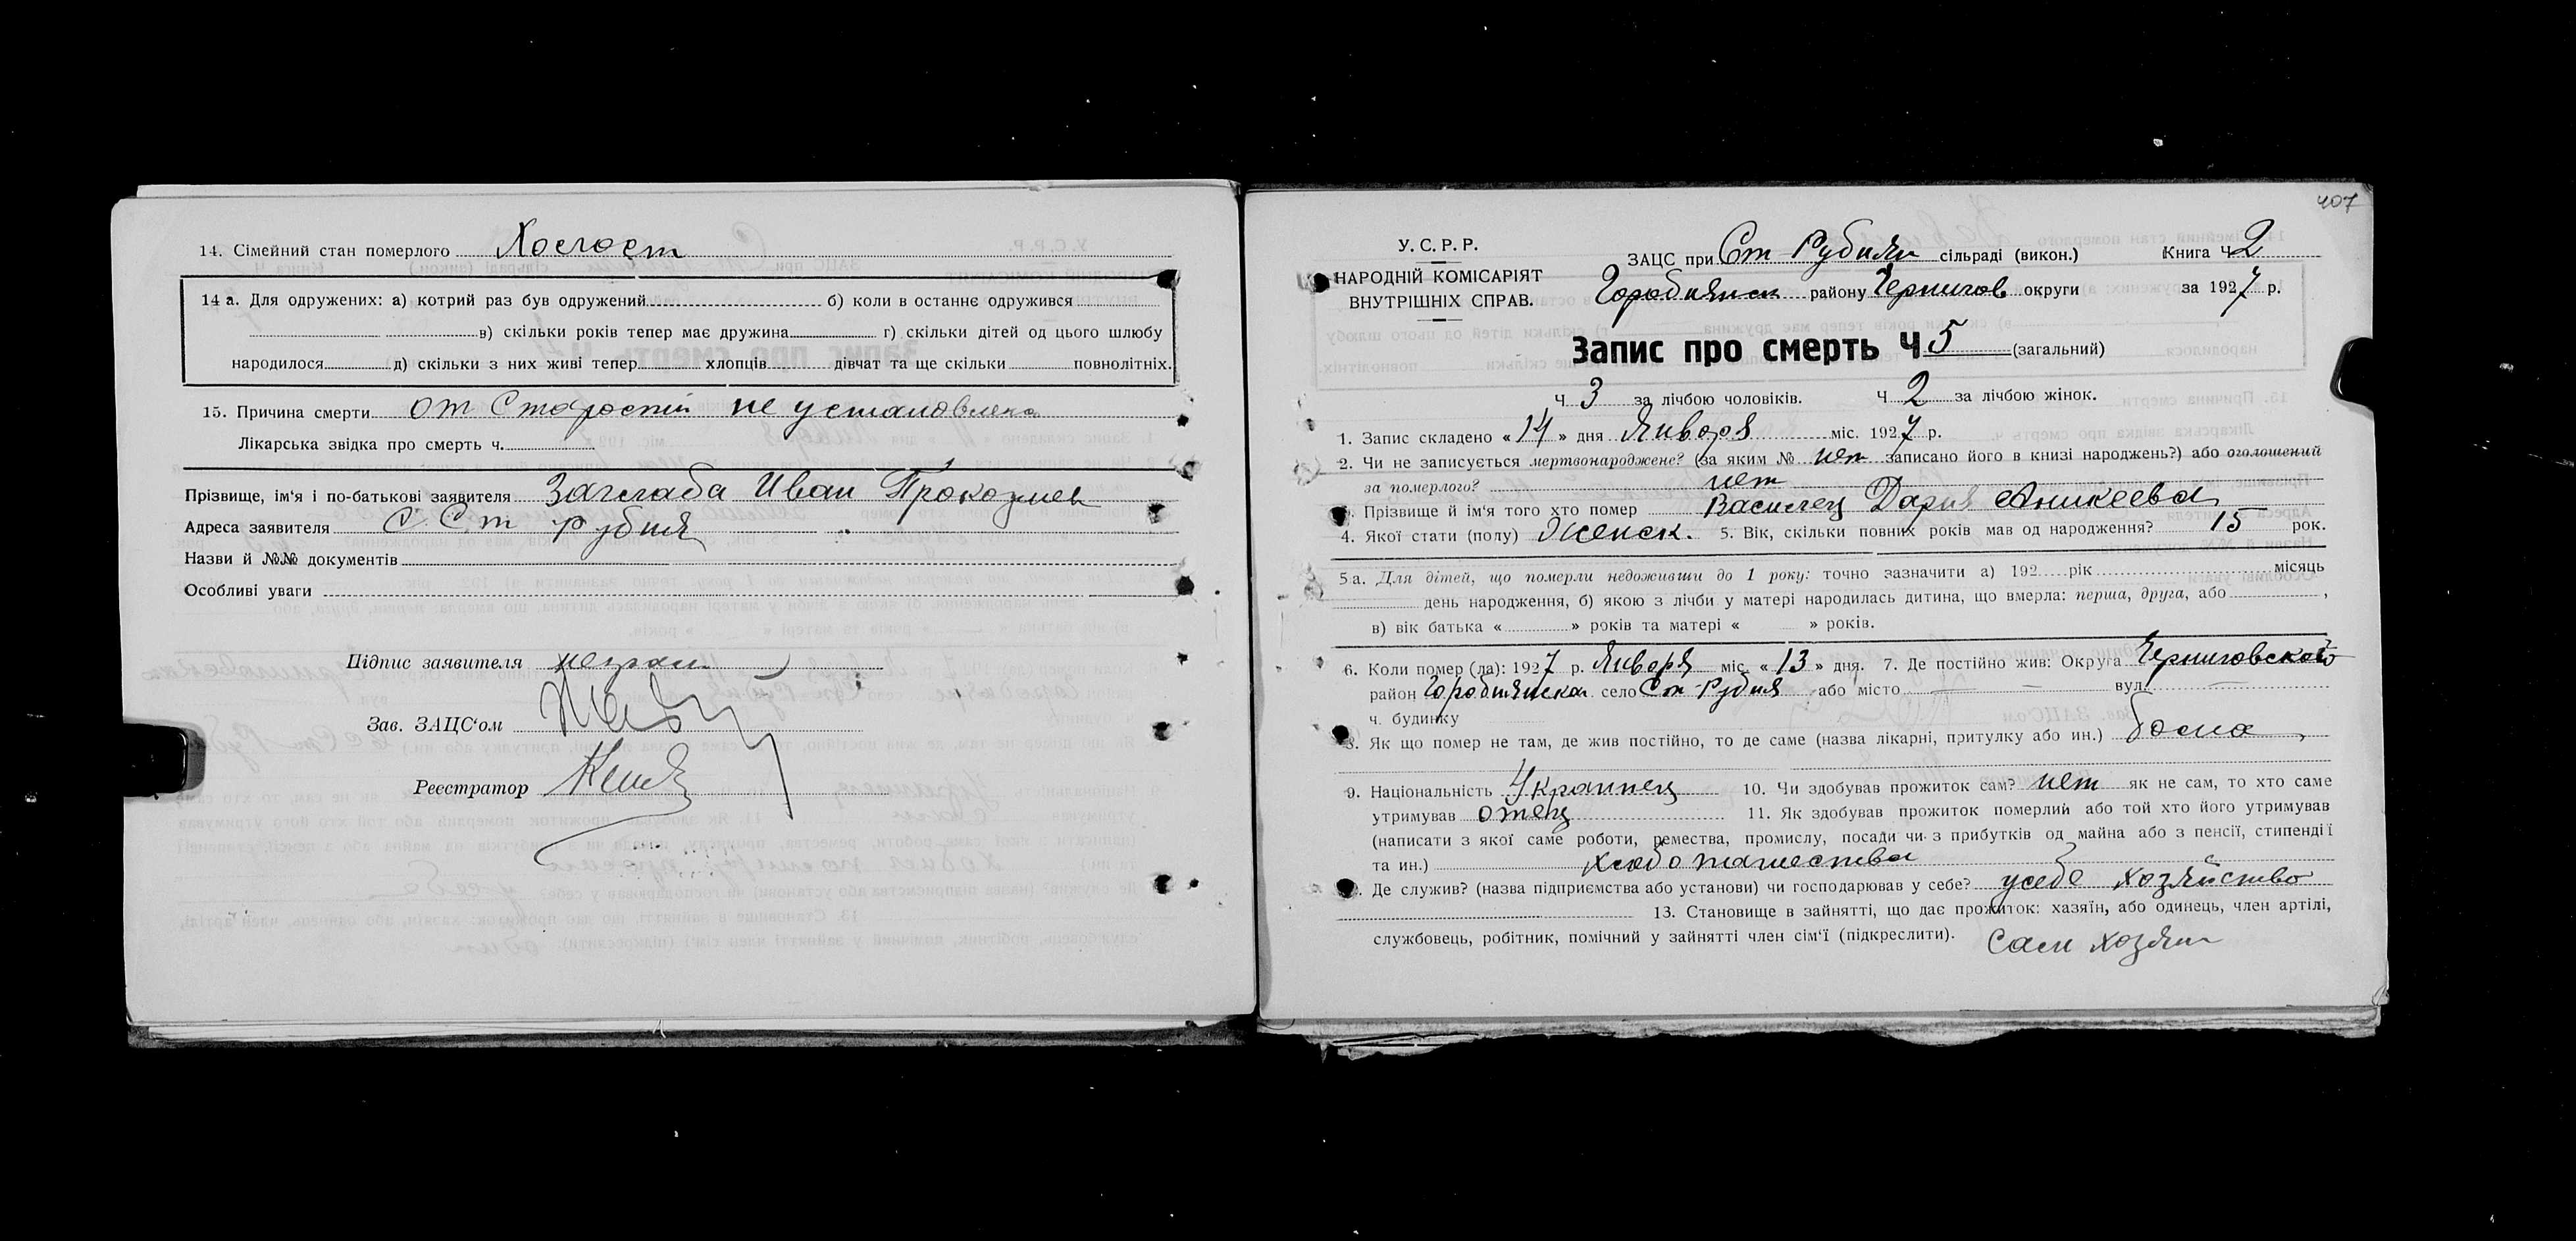 14. Сімейний стан померлого Холост
14 а. Для одружених: а) котрий раз був одружений б) коли в останнє одружився
в) скільки років тепер має дружина г) скільки дітей од цього шлюбу
народилося д) скільки з них живі тепер хлопців дівчат та ще скільки повнолітніх.
15. Причина смерти от Старости не установлена
Лікарська звідка про смерть ч.
Прізвище, ім'я і по-батькові заявителя Заглаба Иван
Адреса заявителя С. Ст Рубия
Назви й №№ документів
Особливі уваги
Підпис заявителя неграм
Зав. ЗАЦС'ом
Реєстратор
407
У. С. Р. Р.
НАРОДНІЙ КОМІСАРІЯТ
ВНУТРІШНІХ СПРАВ.
ЗАЦС при Ст Рубиян сільраді (викон.) Книга Ч 2
Городнянск району Чернигов округи за 1927 р.
Запис про смерть Ч 5 (загальний)
Ч 3 за лічбою чоловіків. Ч 2 за лічбою жінок.
1. Запис складено « 14 » дня Января міс. 1927 р.
2. Чи не записується мертвонароджене? (за яким № нет записано його в книзі народжень?) або оголошений
за померлого? нет
Прізвище й ім'я того хто помер Василец Дария Аникеева
4. Якої стати (полу) Женск. 5. Вік, скільки повних років мав од народження? 15 рок.
5а. Для дітей, що померли недоживши до 1 року: точно зазначити а) 192 рік місяць
день народження, б) якою з лічби у матері народилась дитина, що вмерла: перша, друга, або ,
в) вік батька « » років та матері « » років.
6. Коли помер (ла): 1927 р. Января міс. « 13 » дня. 7. Де постійно жив: Округа Черниговской
район Городнянском село Ст-Рубия або місто — вул. —
ч. будинку
8. Як що помер не там, де жив постійно, то де саме (назва лікарні, притулку або ин.) дома
9. Національність Украинец 10. Чи здобував прожиток сам? нет як не сам, то хто саме
утримував отец 11. Як здобував прожиток померлий або той хто його утримував
(написати з якої саме роботи, ремества, промислу, посади чи з прибутків од майна або з пенсії, стипендії
та ин.) хлебопашества
Де служив? (назва підприємства або установи) чи господарював у себе? у себе хозяйство
13. Становище в зайнятті, що дає прожиток: хазяїн, або одинець, член артілі,
службовець, робітник, помічний у зайнятті член сім'ї (підкреслити). Сам хозяин